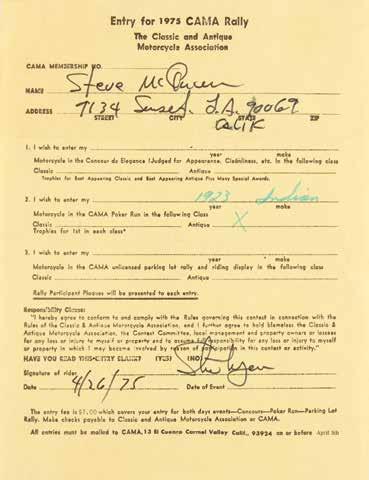 Entry for 1975 CAMA Rally
The Classic and Antique
Motorcycle Association
CAMA MEMBERSHIP NO.
NAME Steve McQueen
ADDRESS 7134 Sunset. L.A. 90069
STREET CITY STATE ZIP
Calif
1. I wish to enter my
year make
Motorcycle in the Concour de Elegance (Judged for Appearance, Cleanliness, etc. In the following class
Classic Antique
Trophies for Best Appearing Classic and Best Appearing Antique Plus Many Special Awards.
2. I wish to enter my 1923 Indian
year make
Motorcycle in the CAMA Poker Run in the following Class
Classic Antique X
Trophies for 1st in each class"
3. I wish to enter my
year make
Motorcycle in the CAMA unlicensed parking lot rally and riding display in the following class
Classic Antique
Rally Participant Plaques will be presented to each entry.
Responsibility Clause:
"I hereby agree to conform to and comply with the Rules governing this contest in connection with the
Rules of the Classic & Antique Motorcycle Association, and I further agree to hold blameless the Classic &
Antique Motorcycle Association, the Contest Committee, local management and property owners or lessees
for any loss or injury to myself or property and to assume full responsibility for any loss or injury to myself
or property in which I may become involved by reason of participation in this contest or activity."
HAVE YOU READ THIS ENTRY CLAUSE? (YES) (NO)
Signature of rider
Date 4/26/75 Date of Event
The entry fee is $7.00 which covers your entry for both days events—Concours—Poker Run—Parking Lot
Rally. Make checks payable to Classic and Antique Motorcycle Association or CAMA.
All entries must be mailed to CAMA, 13 El Cuenco Carmel Valley Calif., 93924 on or before April 5th